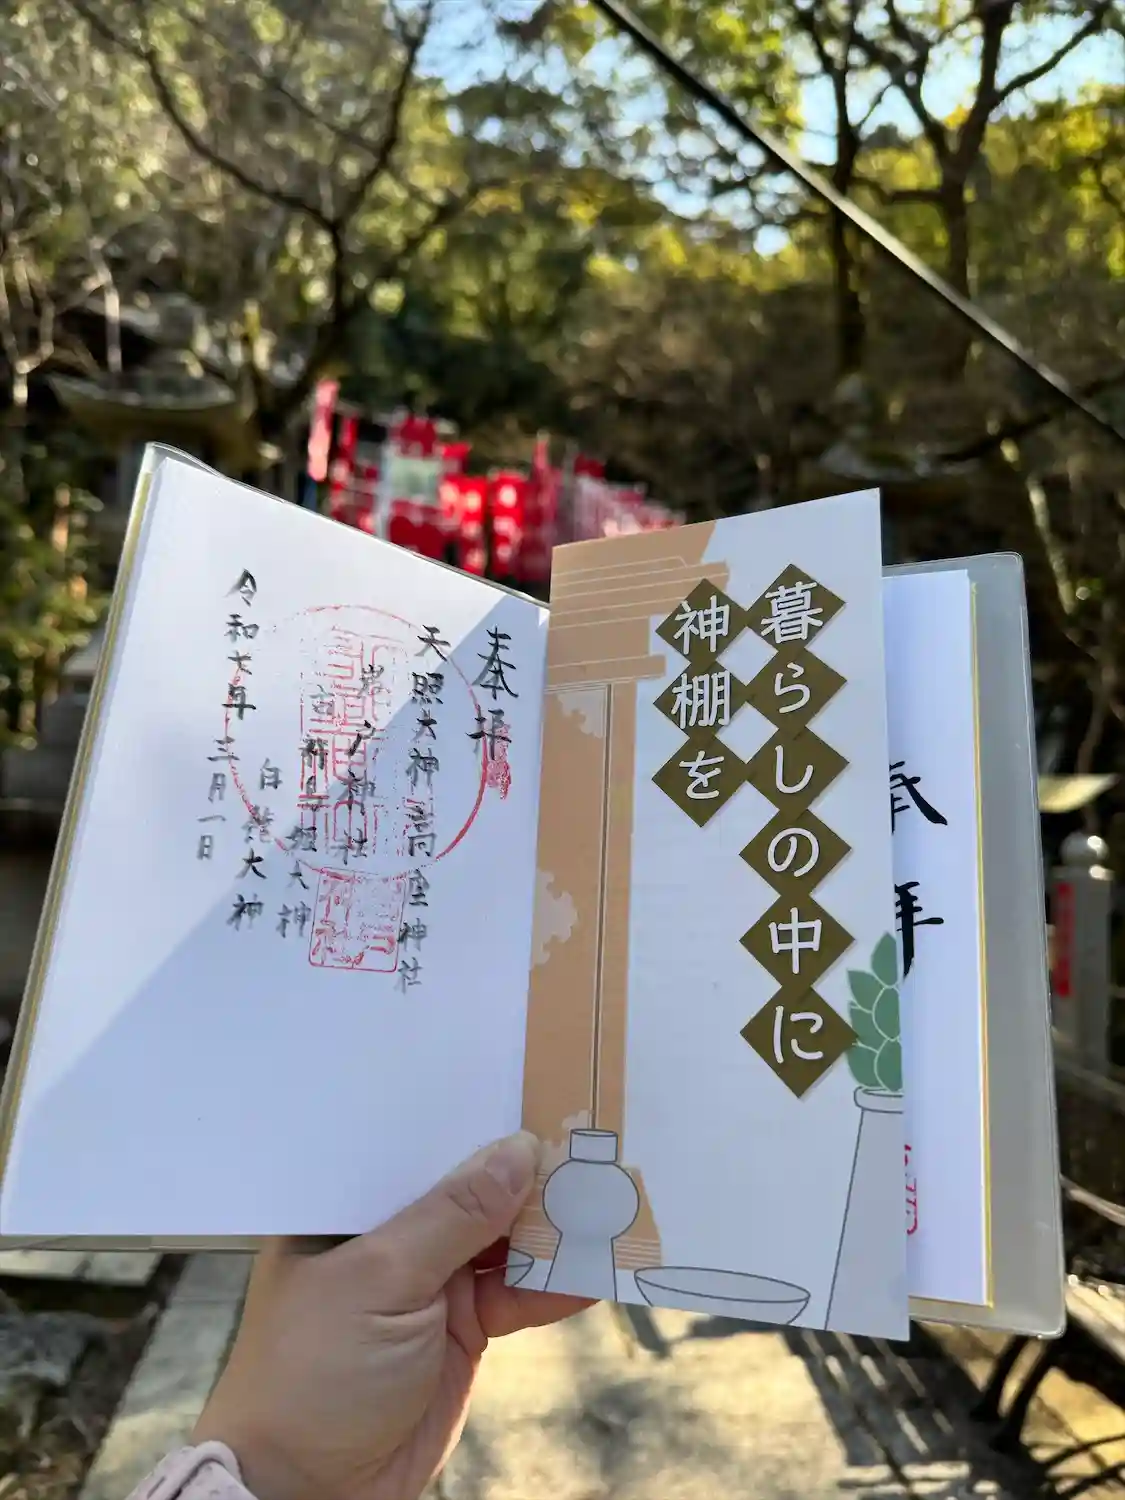 奉拝
天照大神高座神社
岩戸神社
市杵島姫大神
白龍大神
令和六年
三月一日
暮らしの中に
神棚を
奉拝